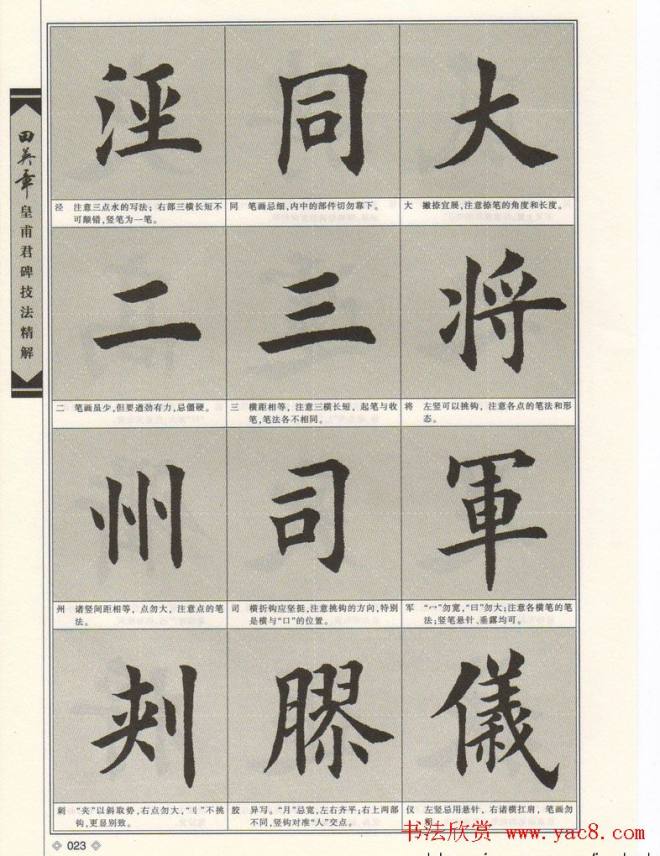 田英章
皇甫君碑技法精解
大
大 撇捺宜展,注意捺笔的角度和长度。
将
将 左竖可以挑钩,注意各点的笔法和形
态。
軍
军 “冖”勿宽,“曰”勿大;注意各横笔的笔
法;竖笔悬针、垂露均可。
儀
仪 左竖忌用悬针,右诸横扛肩,笔画勿
同
同 笔画忌细,内中的部件切勿靠下。
三
三 横距相等,注意三横长短,起笔与收
笔,笔法各不相同。
司
司 横折钩应坚挺,注意挑钩的方向,特别
是横与“口”的位置。
膠
胶 异写。“月”忌宽,左右齐平;右上两部
不同,竖钩对准“人”交点。
泾
泾 注意三点水的写法;右部三横长短不
可颠错,竖笔为一笔。
二
二 笔画虽少,但要遒劲有力,忌僵硬。
州
州 诸竖间距相等,点勿大,注意点的笔
法。
刾
刺 “夹”以斜取势,右点勿大,“刂”不挑
钩,更显别致。
023
书法欣赏 www.yac8.com